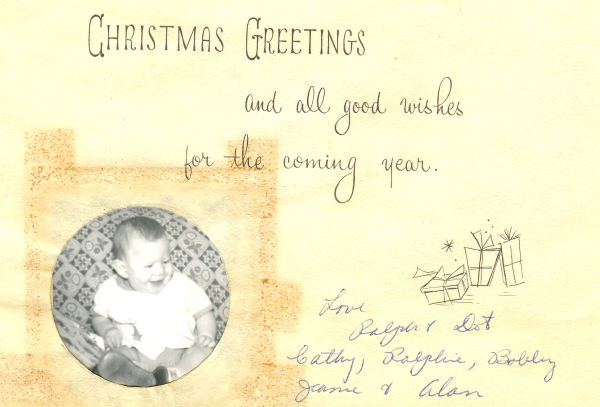 CHRISTMAS GREETINGS
and all good wishes
for the coming year.
Love
Ralph & Dot
Cathy, Ralphie, Bobby
Jeanie & Alan